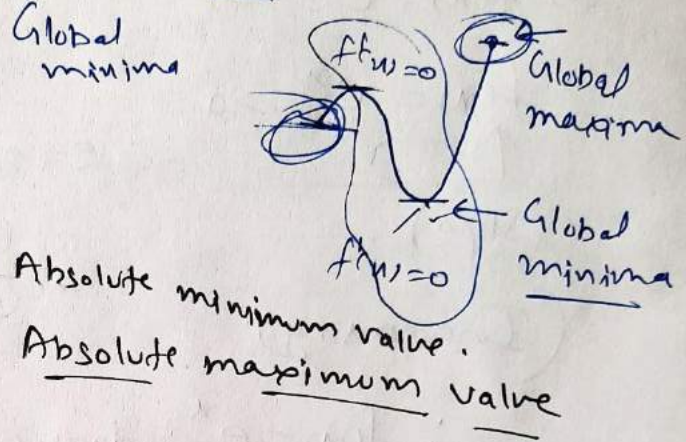 Global
minima
f'(x)=0
Global
maxima
Global
minima
f'(x)=0
Absolute minimum value.
Absolute maximum value